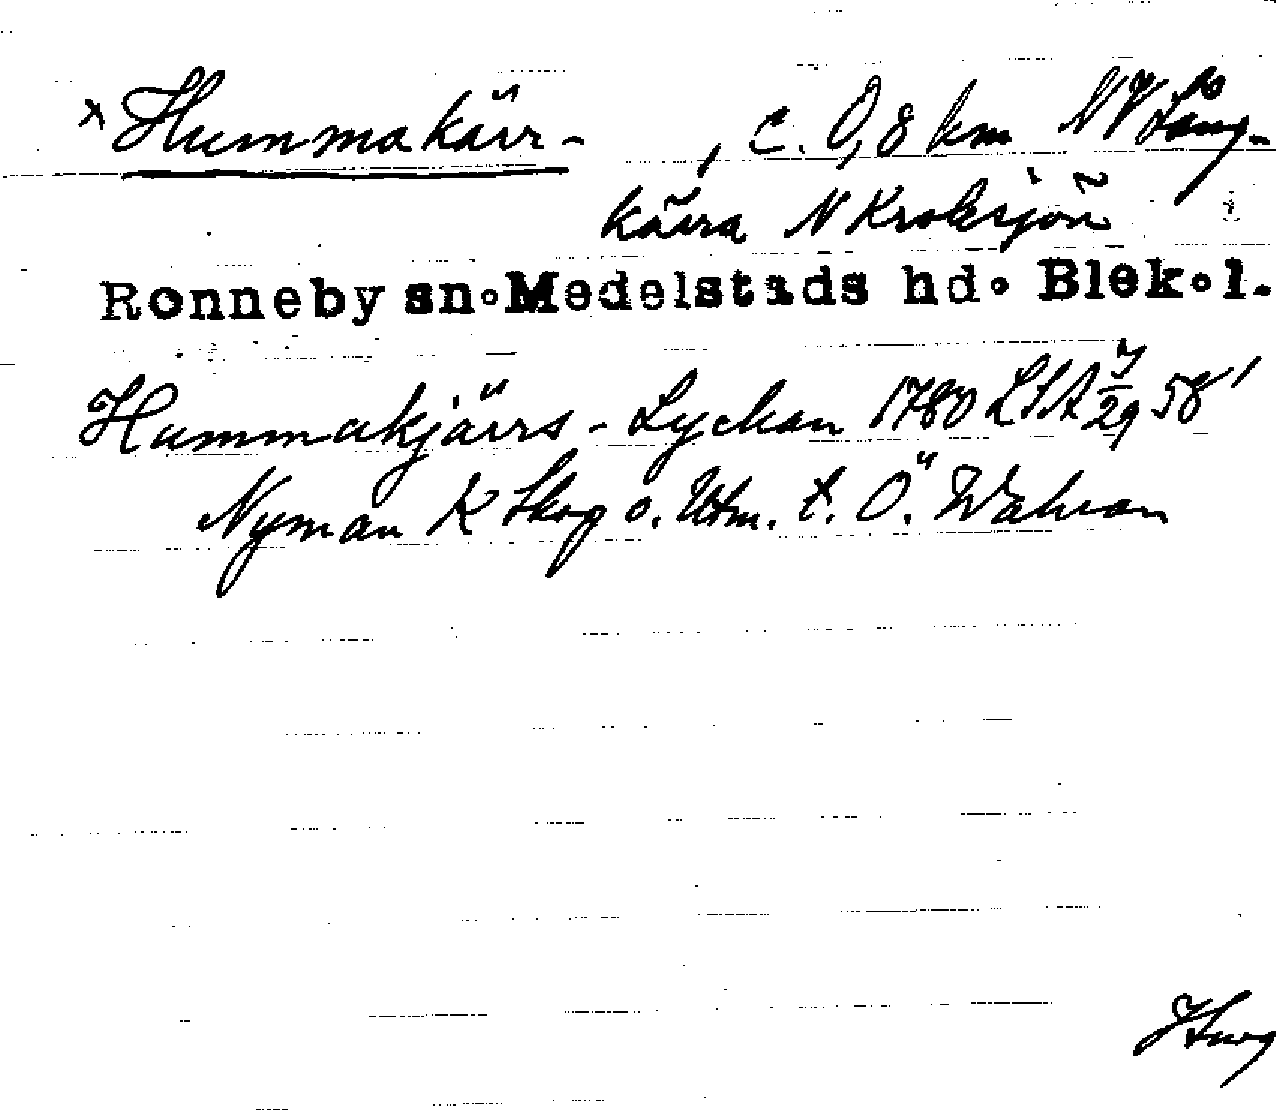 x Hummakärr- , c. 0,8 km NV Lång-
kärra N Kroksjön
Ronneby sn. Medelstads hd. Blek. l.
Hummakjärrs-Lyckan 1780 LSA J/29 58'
Nyman K Skog o. Utm. t. Ö. Walvan